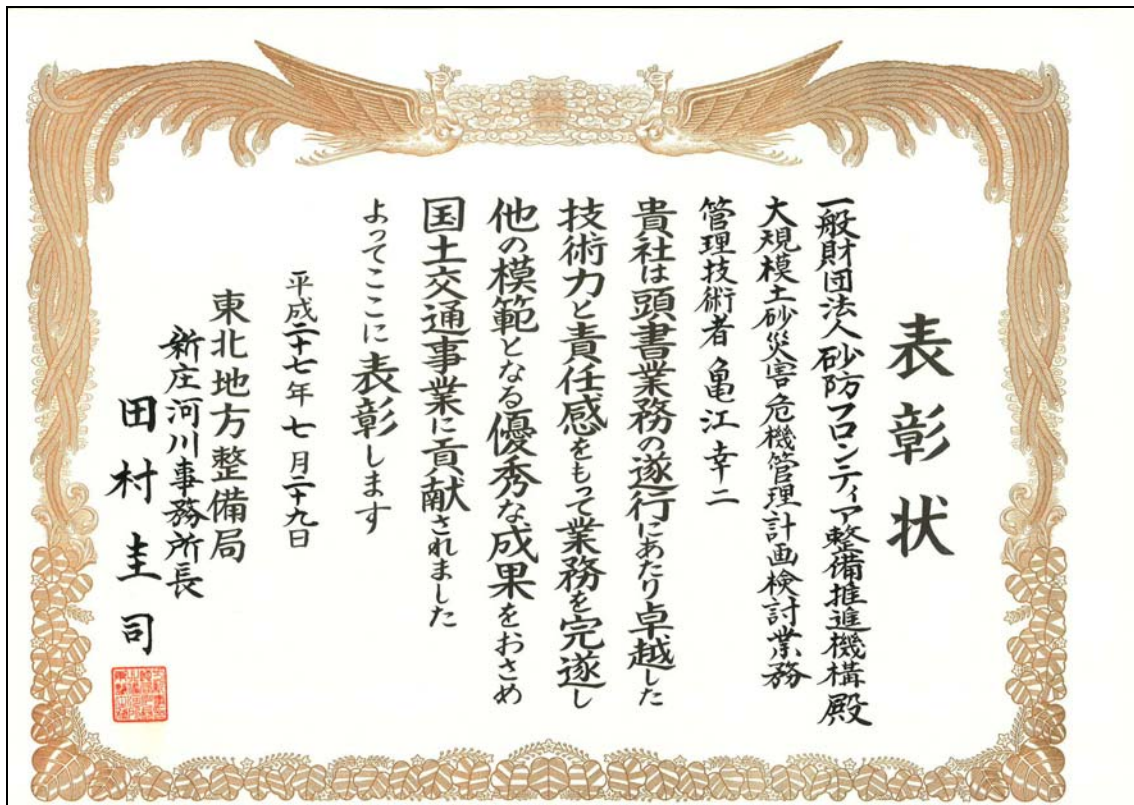 表彰状
一般財団法人砂防フロンティア整備推進機構殿
大規模土砂災害危機管理計画検討業務
管理技術者 亀江幸二
貴社は頭書業務の遂行にあたり卓越した
技術力と責任感をもって業務を完遂し
他の模範となる優秀な成果をおさめ
国土交通事業に貢献されました
よってここに表彰します
平成二十七年七月二十九日
東北地方整備局
新庄河川事務所長
田村圭司